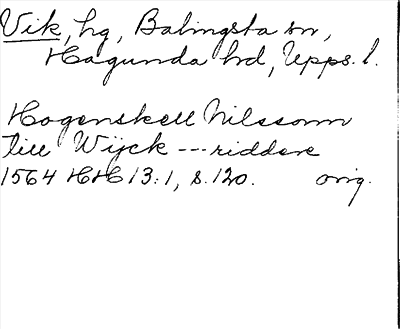 Vik, hg, Balingsta sn,
Hagunda hd, Upps. l.
Hogenskell Nilssonn
till Wijck --- riddere
1564 HH 13:1, s. 120. orig.